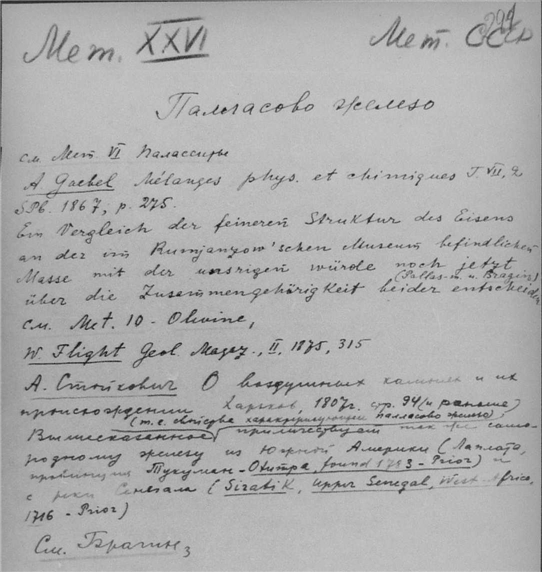 294
Мет. XXVI Мет. СССР
Палласово железо
см. Мет. VI Палласиты
A Goebel Mélanges phys. et chimiques T. VII,
SPb. 1867, p. 275.
Ein Vergleich der feineren Struktur des Eisens
an der im Rumjanzow'schen Museum befindlichen
Masse mit der unsrigen würde noch jetzt
(Pallas-u. u. Bragin)
über die Zusammengehörigkeit beider entscheiden
см. Met. 10 - Olivine,
W. Flight Geol. Magaz., II, 1875, 315
А. Стойкович О воздушных камнях и их
происхождении Харьков, 1807г. стр. 94 (и раньше)
(т.е. свойства характеризующие палласово железо)
Вышесказанное приличествует так же само-
родному железу из Южной Америки (Лаплата,
провинция Тукуман - Otumpa, found 1783 - Prior) и
с реки Сенегала (Siratik, Upper Senegal, West Africa,
1716 - Prior)
См. Брагин,